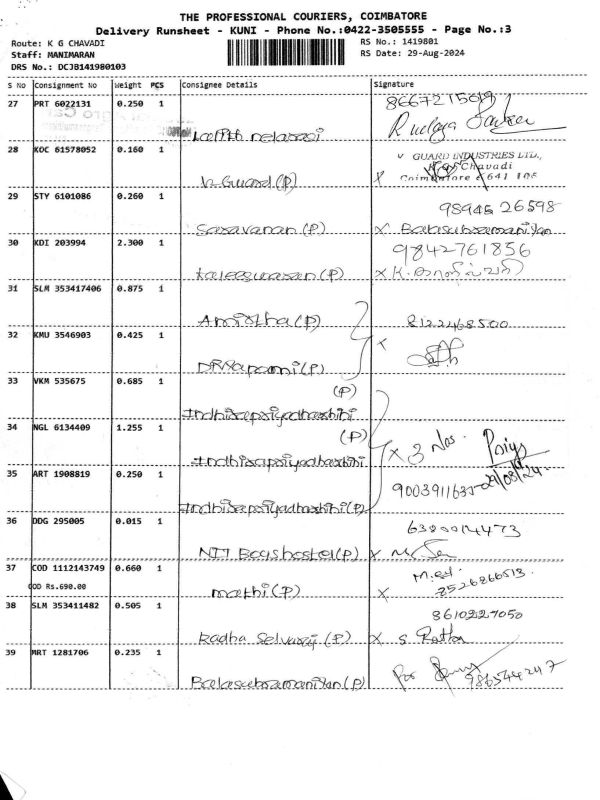 THE PROFESSIONAL COURIERS, COIMBATORE
Delivery Runsheet - KUNI - Phone No.:0422-3505555 - Page No.:3
Route: K G CHAVADI
RS No.: 1419801
Staff: MANIMARAN
RS Date: 29-Aug-2024
DRS No.: DCJB141980103
S No Consignment No Weight PCS Consignee Details Signature
27 PRT 6022131 0.250 1
28 KOC 61578052 0.160 1
V GUARD INDUSTRIES LTD.,
K G Chavadi
V-Guard (P) x Coimbatore 641 105
29 STY 6101086 0.260 1
98945 26598
Saravanan (P) x Balasubramaniyan
30 KDI 203994 2.300 1
9842761856
Kaleeswaran (P) x K.
31 SLM 353417406 0.875 1
Amirtha (P)
8122468500
32 KMU 3546903 0.425 1
x
(P)
33 VKM 535675 0.685 1
(P)
Indhirapriyadharshini
34 NGL 6134409 1.255 1
(P)
x 3 Nos. Priya
Indhirapriyadharshini
29/08/24
35 ART 1908819 0.250 1
9003911635
Indhirapriyadharshini (P)
36 DDG 295005 0.015 1
NIT Boys hostel (P) x
37 COD 1112143749 0.660 1
COD Rs.690.00
mathi (P) x
38 SLM 353411482 0.505 1
8610227050
Radha Selvaraj (P) x S
39 MRT 1281706 0.235 1
Balasubramaniyan (P)